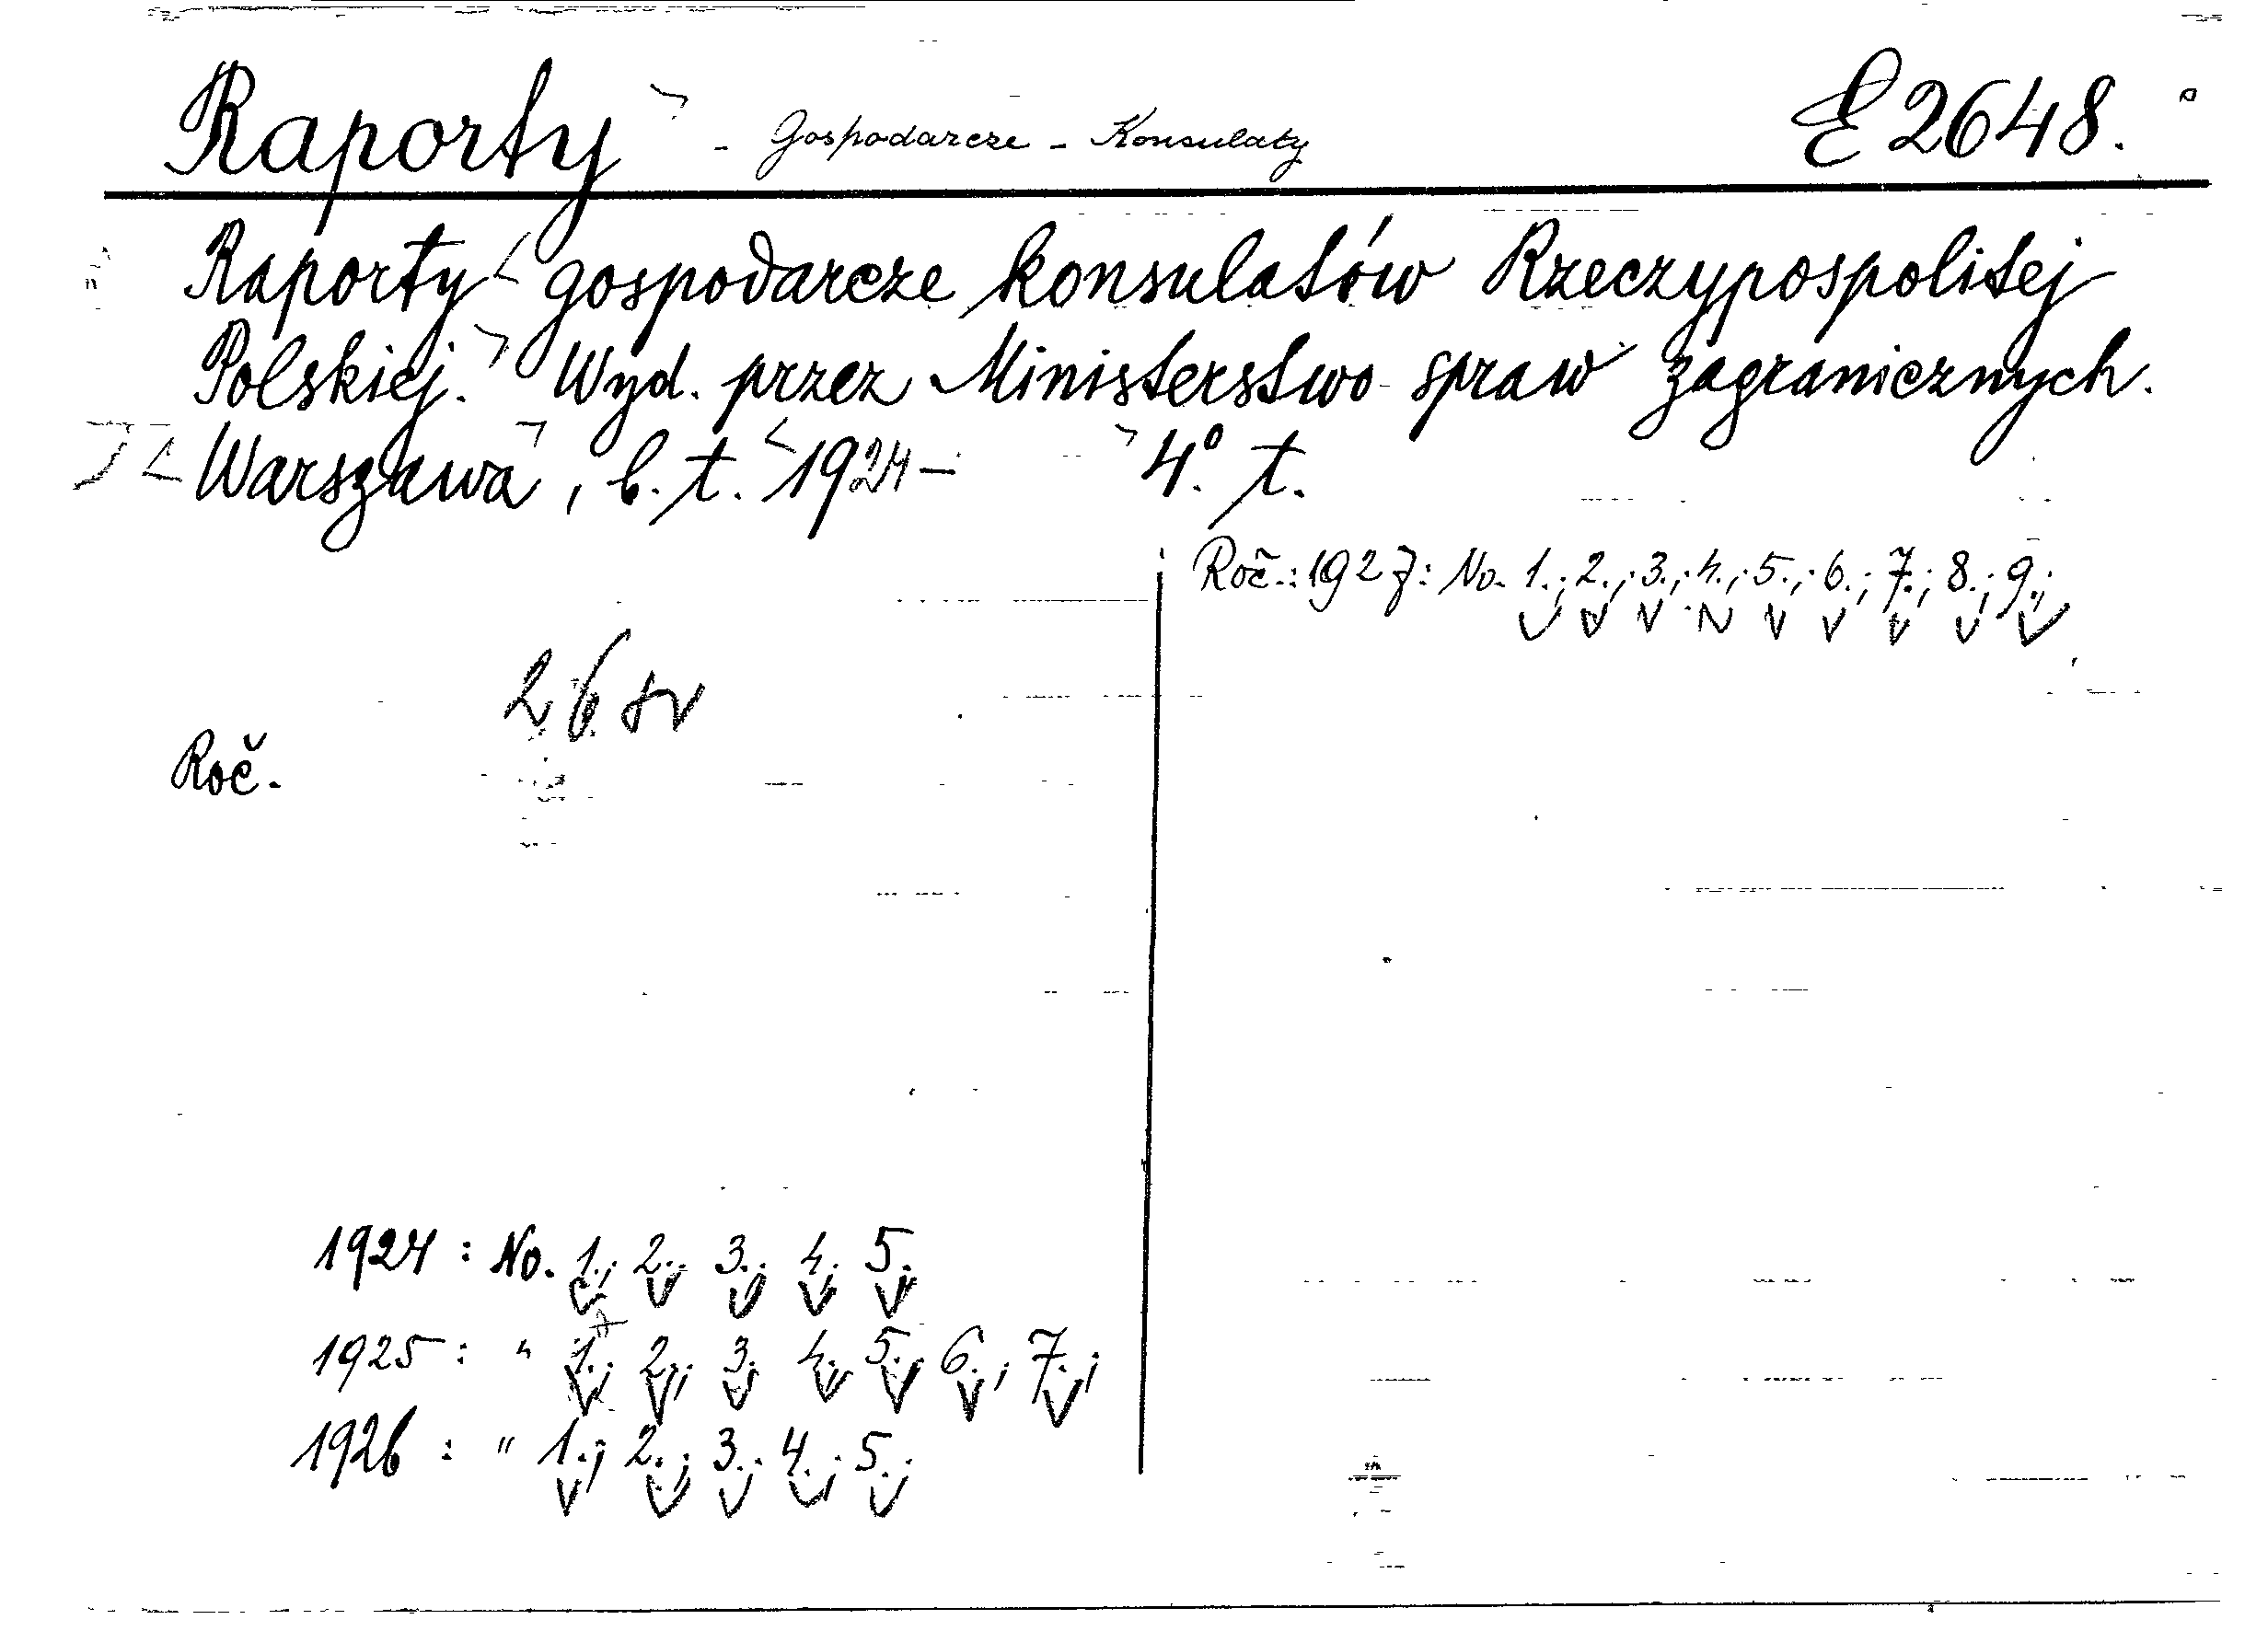 Raporty - Gospodarcze - Konsulaty E 2648.
Raporty gospodarcze konsulatów Rzeczypospolitej
Polskiej. Wyd. przez Ministerstwo spraw zagranicznych.
Warszawa, b. t. 1924- 4º. t.
Roč.: 1927: No. 1.; 2.; 3.; 4.; 5.; 6.; 7.; 8.; 9.;
26
Roč.
1924 : No. 1.; 2.; 3.; 4. 5.
1925 : " 1.; 2.; 3. 4. 5.; 6.; 7.;
1926 : " 1.; 2.; 3.; 4.; 5.;